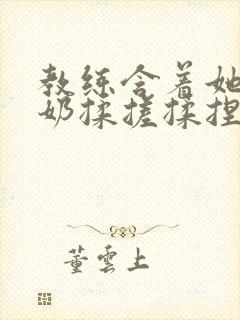 教练含着她
奶揉搓揉捏
董雲上